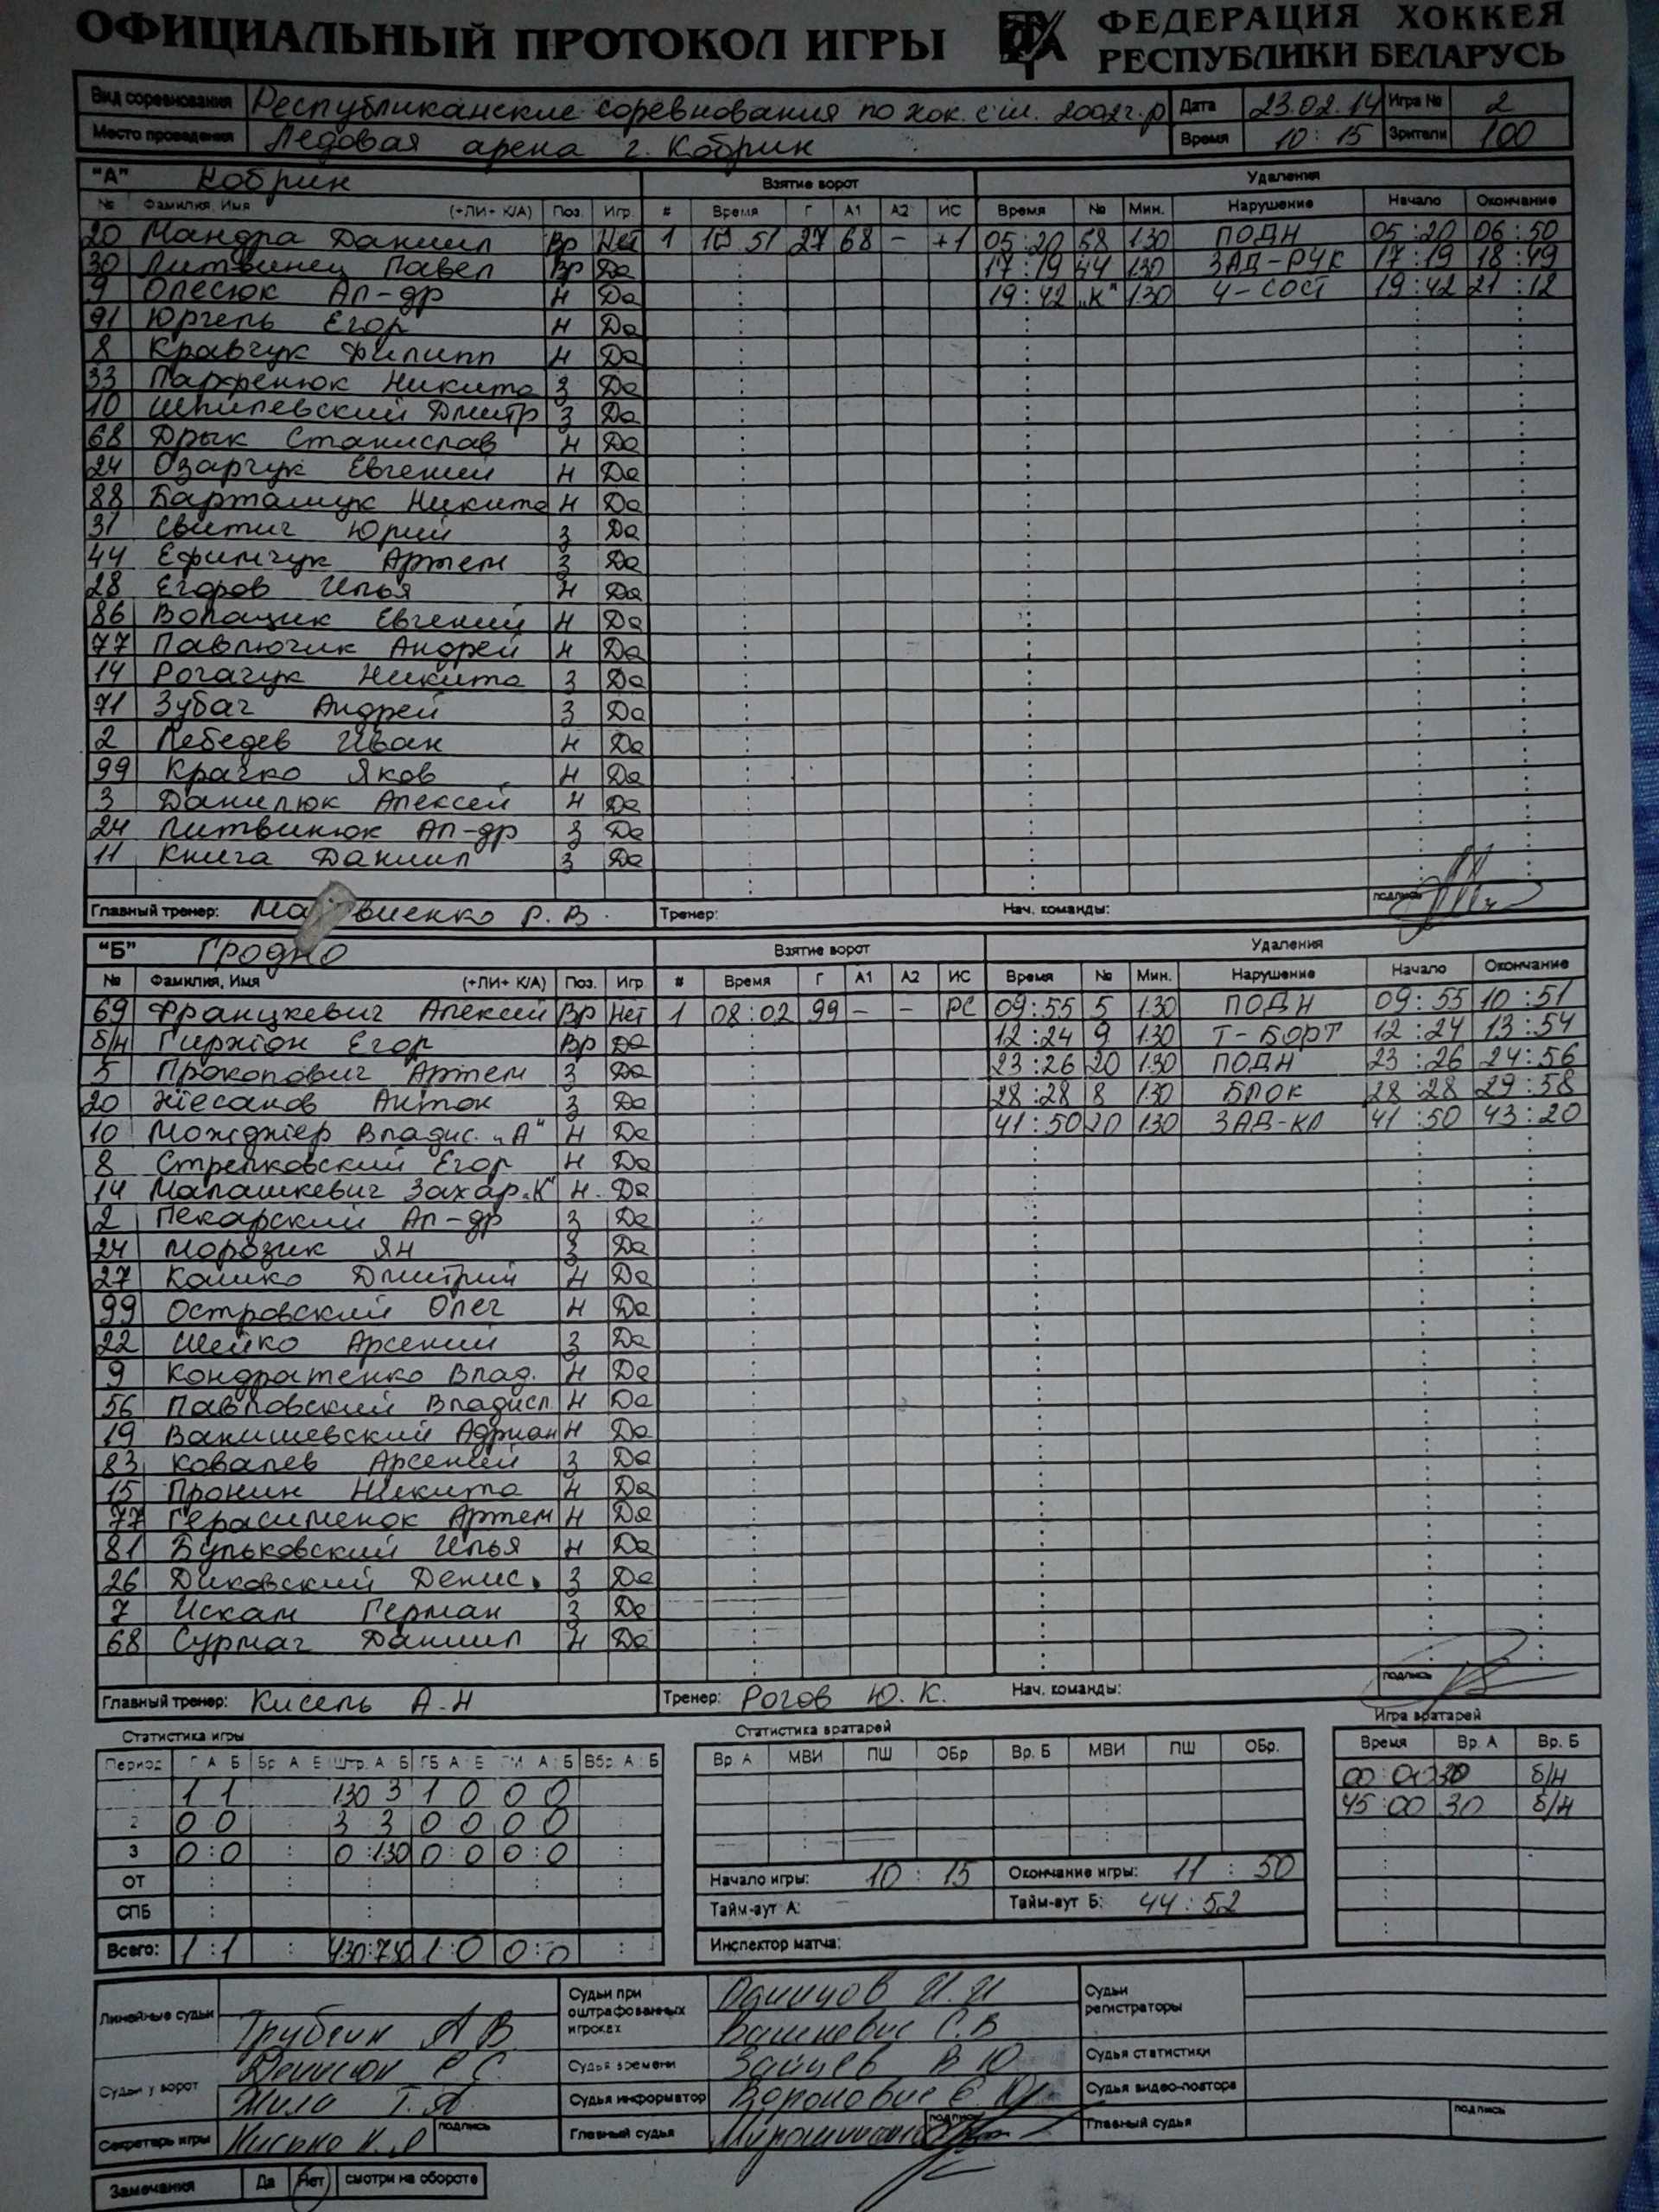 ОФИЦИАЛЬНЫЙ ПРОТОКОЛ ИГРЫ
ФЕДЕРАЦИЯ ХОККЕЯ
РЕСПУБЛИКИ БЕЛАРУСЬ
Вид соревнования Республиканские соревнования по хок. с ш. 2002г.р Дата 23.02.14 Игра № 2
Место проведения Ледовая арена г. Кобрин Время 10:15 Зрители 100
"А" Кобрин Взятие ворот Удаления
№ Фамилия, Имя (+ЛИ+ К/А) Поз. Игр. # Время Г А1 А2 ИС Время № Мин. Нарушение Начало Окончание
20 Мандра Даниил Вр Нет 1 10 51 27 68 - +1 05:20 58 1.30 ПОДН 05:20 06:50
30 Литвинец Павел Вр Да 17:19 44 1.30 ЗАД-РУК 17:19 18:49
9 Олесюк Ал-др Н Да 19:42 "К" 1.30 Ч-СОСТ 19:42 21:12
91 Юргель Егор Н Да
8 Кравчук Филипп Н Да
33 Парфенюк Никита З Да
10 Шпилевский Дмитр З Да
68 Дрык Станислав Н Да
24 Озарчук Евгений Н Да
88 Барташук Никита Н Да
31 Свитич Юрий З Да
44 Ефимчук Артем З Да
28 Егоров Илья Н Да
86 Волащик Евгений Н Да
77 Павлючик Андрей Н Да
14 Рогачук Никита З Да
71 Зубач Андрей З Да
2 Лебедев Иван Н Да
99 Крачко Яков Н Да
3 Данилюк Алексей Н Да
24 Литвинюк Ал-др З Да
11 Книга Даниил З Да
Главный тренер: Матвиенко Р. В. Тренер: Нач. команды: подпись
"Б" Гродно Взятие ворот Удаления
№ Фамилия, Имя (+ЛИ+ К/А) Поз. Игр. # Время Г А1 А2 ИС Время № Мин. Нарушение Начало Окончание
69 Францкевич Алексей Вр Нет 1 08:02 99 - - РС 09:55 5 1.30 ПОДН 09:55 10:51
б/н Гиржон Егор Вр Да 12:24 9 1.30 Т-БОРТ 12:24 13:54
5 Прокопович Артем З Да 23:26 20 1.30 ПОДН 23:26 24:56
20 Антон З Да 28:28 8 1.30 БЛОК 28:28 29:58
10 Владис. "А" Н Да 41:50 20 1.30 ЗАД-КЛ 41:50 43:20
8 Стрелковский Егор Н Да
14 Малашкевич Захар "К" Н Да
2 Пекарский Ал-др З Да
24 Морозик Ян З Да
27 Кошко Дмитрий Н Да
99 Островский Олег Н Да
22 Шейко Арсений З Да
9 Кондратенко Влад. Н Да
56 Павловский Владисл Н Да
19 Ванишевский Адриан Н Да
83 Ковалев Арсений З Да
15 Пронин Никита Н Да
77 Герасименок Артем Н Да
81 Бульковский Илья Н Да
26 Диковский Денис З Да
7 Искам Герман З Да
68 Сурмач Даниил Н Да
Главный тренер: Кисель А.Н Тренер: Рогов Ю. К. Нач. команды: подпись
Статистика игры Статистика вратарей Игра вратарей
Период Г А Б Бр А Б Штр. А Б ГБ А Б ГМ А Б Вбр А Б Вр. А МВИ ПШ ОБр Вр. Б МВИ ПШ ОБр. Время Вр. А Вр. Б
1 1 1.30 3 1 0 0 0 00:00 30 б/н
2 0 0 3 3 0 0 0 0 45:00 30 б/н
3 0:0 0:1.30 0:0 0:0
ОТ Начало игры: 10:15 Окончание игры: 11:50
СПБ Тайм-аут А: Тайм-аут Б: 44:52
Всего: 1:1 4.30:7.30 1:0 0:0 Инспектор матча:
Линейные судьи Трубчик А В
Судьи при оштрафованных игроках Данилов И. И
Вашкевич С. В
Судьи регистраторы
Судьи у ворот Денисюк С С.
Жила Т. А.
Судья времени Зайцев В Ю
Судья статистики
Судья информатор Воронович Е. Ю
Судья видео-повтора
Секретарь игры подпись
Главный судья подпись
Главный судья подпись
Замечания Да Нет смотри на обороте